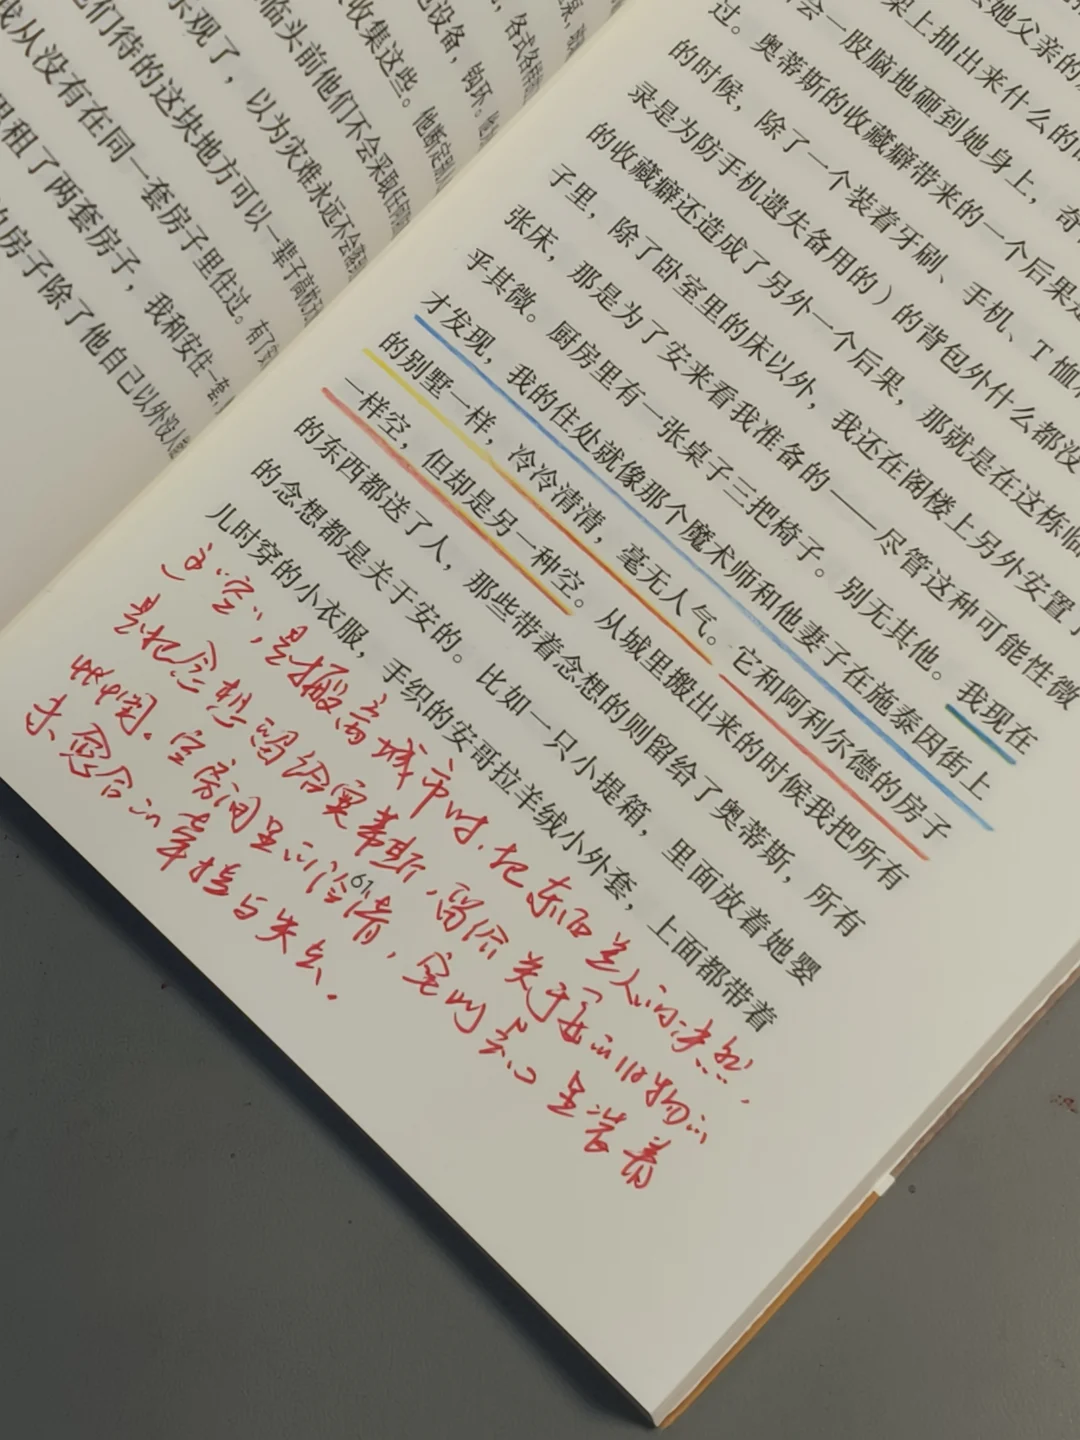 乐观了，以为灾难永远不会
临头前他们不会采取任何
收集这些。他断定
设备，钩环。
各式各样
们待的这块地方可以一辈子高枕无
我从没有在同一套房子里住过。有了
里租了两套房子，我和安住一套，
的房子除了他自己以外没人
她父亲的
架上抽出来什么的
会一股脑地砸到她身上，奇
过。奥蒂斯的收藏癖带来的一个后果是
的时候，除了一个装着牙刷、手机、T恤
录是为防手机遗失备用的）的背包外什么都没
的收藏癖还造成了另外一个后果，那就是在这栋临
子里，除了卧室里的床以外，我还在阁楼上另外安置了
张床，那是为了安来看我准备的——尽管这种可能性微
乎其微。厨房里有一张桌子三把椅子。别无其他。我现在
才发现，我的住处就像那个魔术师和他妻子在施泰因街上
的别墅一样，冷冷清清，毫无人气。它和阿利尔德的房子
一样空，但却是另一种空。从城里搬出来的时候我把所有
的东西都送了人，那些带着念想的则留给了奥蒂斯，所有
的念想都是关于安的。比如一只小提箱，里面放着她婴
儿时穿的小衣服，手织的安哥拉羊绒小外套，上面都带着
61
这“空”，是搬离城市时，把东西送人的决然，
是把念想留给奥蒂斯，留给关于安的旧物的
惆。空房间里的冷清，实则是心里装着
未愈合的牵挂与失去。